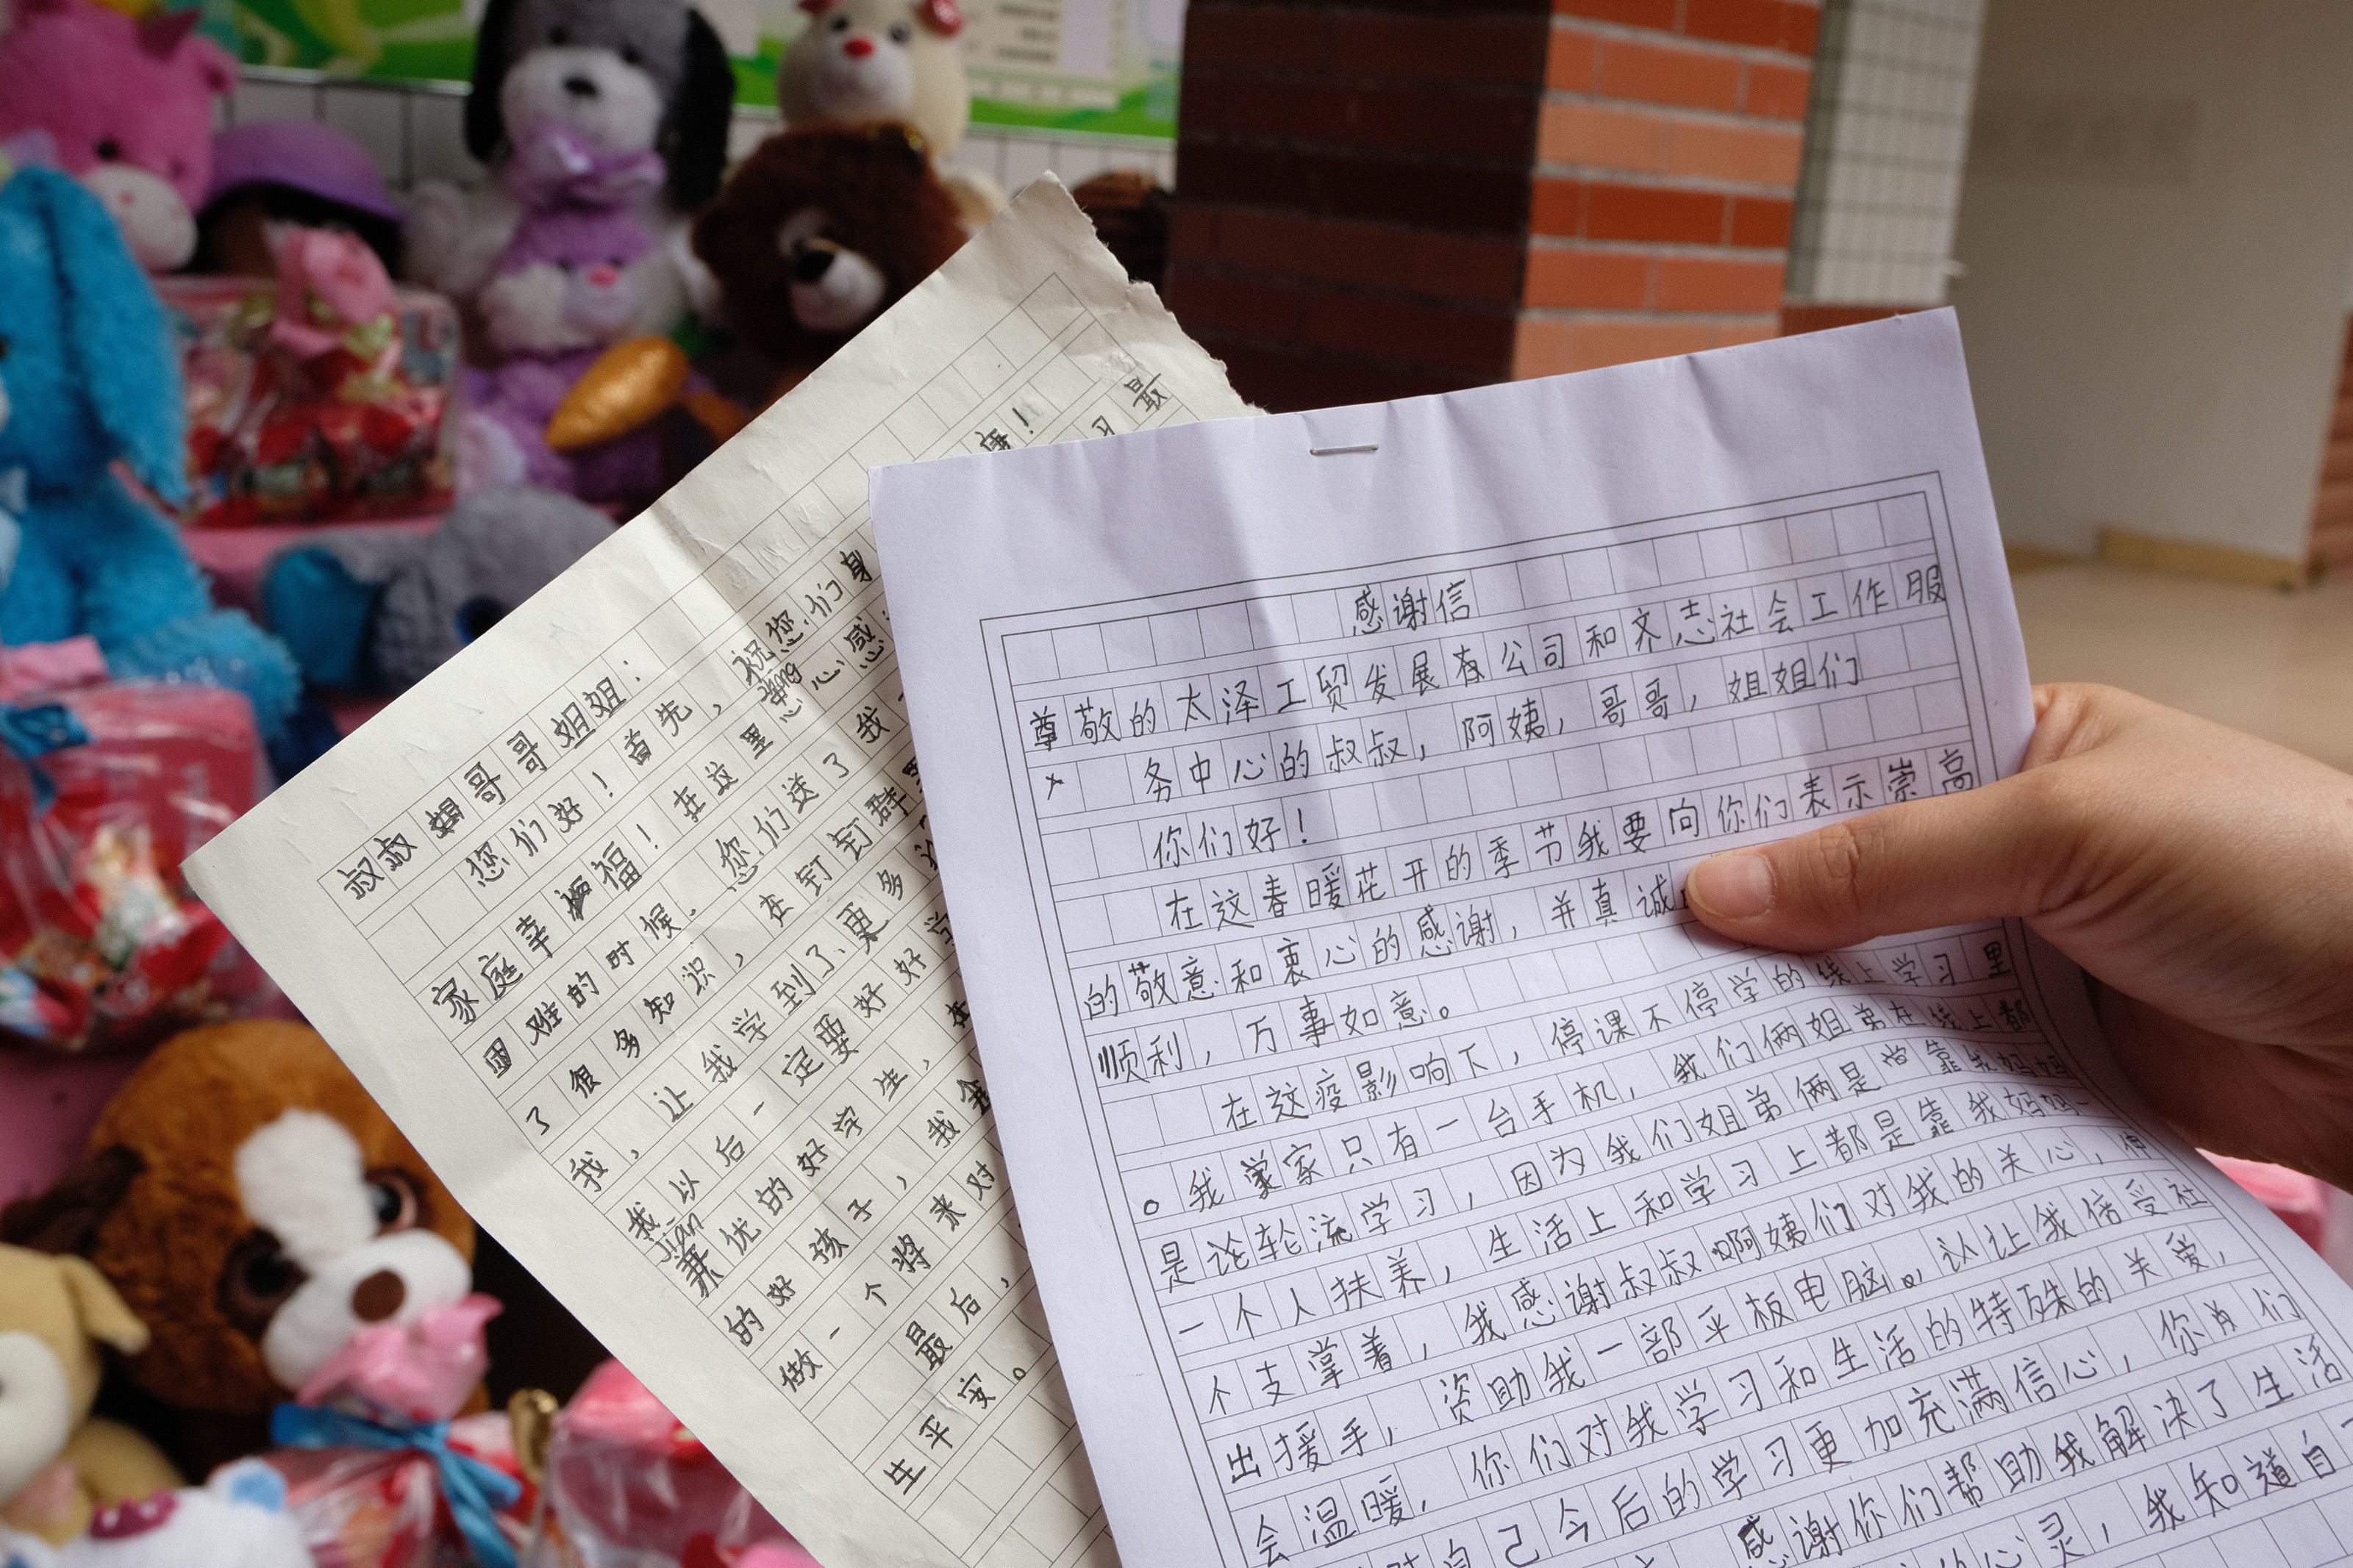 叔叔姐哥哥姐姐：
您们好！首先，祝您们身
家庭幸福！在这里衷zhōng心感
困难的时候.您们送了我
了很多知识，在钉钉群里
我，让我学到了更多
我以后一定要好好学
jian
兼优的好学生，
的好孩子，我会
做一个将来对
最后，
生平安。
康！
习
最
感谢信
尊敬的太泽工贸发展有公司和齐志社会工作服
务中心的叔叔，阿姨，哥哥，姐姐们
你们好！
在这春暖花开的季节我要向你们表示崇高
的敬意和衷心的感谢，并真诚
顺利，万事如意。
在这疫影响下，停课不停学的线上学习里
。我家只有一台手机，我们俩姐弟在线上都
是论轮流学习，因为我们姐弟俩是靠我妈妈
一个人扶养，生活上和学习上都是靠我妈妈一
个支掌着，我感谢叔叔啊姨们对我的关心，伸
出援手，资助我一部平板电脑。，认让我倍受社
会温暖，你们对我学习和生活的特殊的关爱，
自己今后的学习更加充满信心，你们
感谢你们帮助我解决了生活
心灵，我知道自